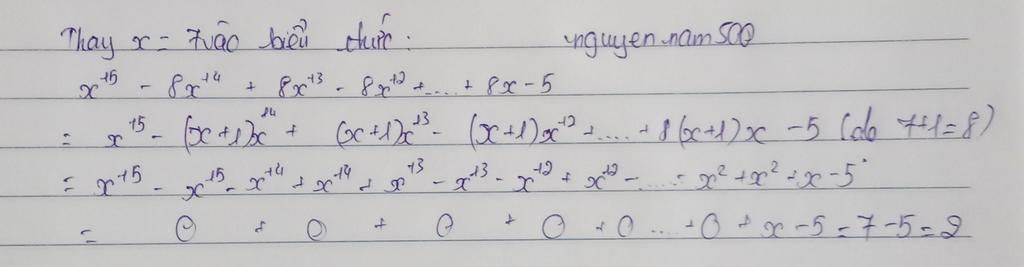 Thay x = 7 vào biểu thức: nguyen.nam500
x¹⁵ - 8x¹⁴ + 8x¹³ - 8x¹² + .... + 8x - 5
= x¹⁵ - (x+1)x¹⁴ + (x+1)x¹³ - (x+1)x¹² + .... + 8(x+1)x - 5 (do 7+1=8)
= x¹⁵ - x¹⁵ - x¹⁴ + x¹⁴ + x¹³ - x¹³ - x¹² + x¹² - .... - x² + x² + x - 5
= 0 + 0 + 0 + 0 + 0 .... + 0 + x - 5 = 7 - 5 = 2